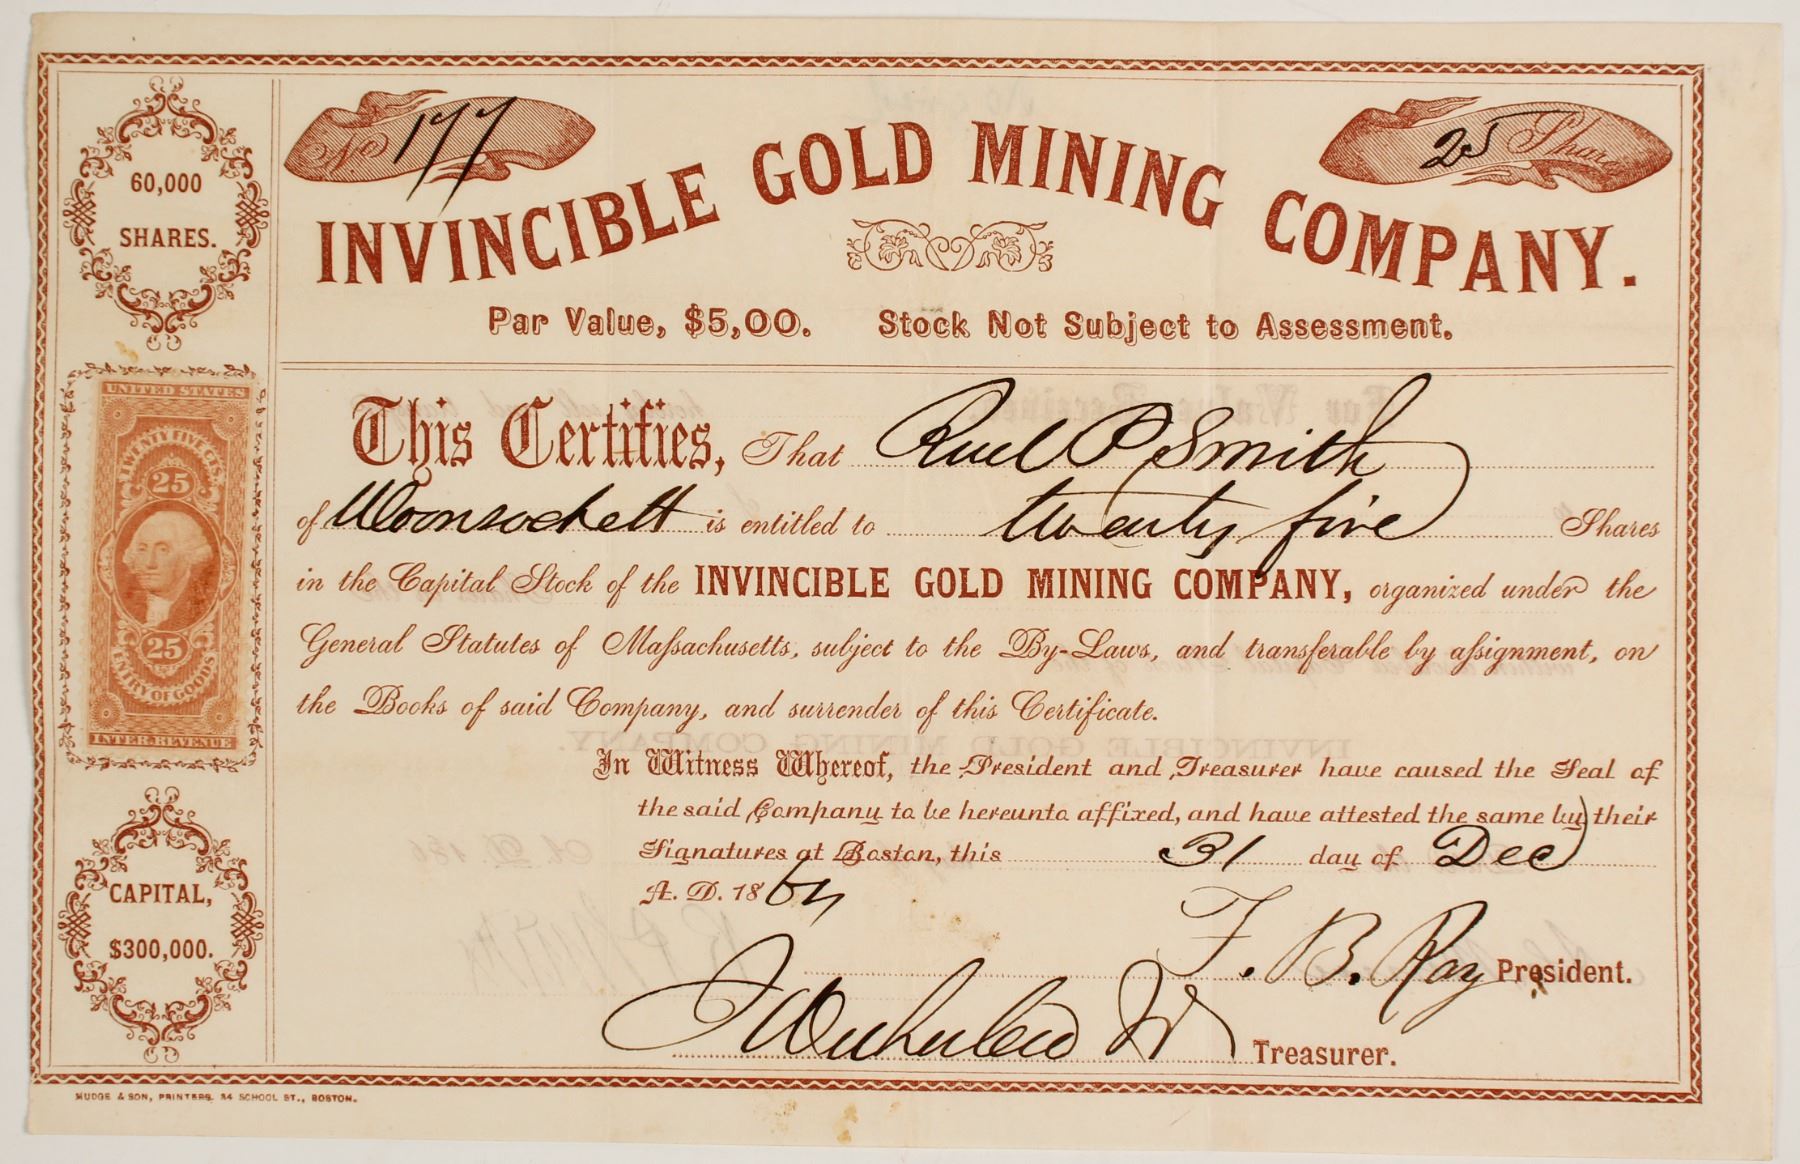 No 177
25 Shares
INVINCIBLE GOLD MINING COMPANY.
Par Value, $5,00. Stock Not Subject to Assessment.
60,000
SHARES.
UNITED STATES
TWENTY FIVE CTS.
25
25
ENTRY OF GOODS
INTER. REVENUE
CAPITAL,
$300,000.
This Certifies, That Ruel P Smith
of Woonsockett is entitled to twenty five Shares
in the Capital Stock of the INVINCIBLE GOLD MINING COMPANY, organized under the
General Statutes of Massachusetts, subject to the By-Laws, and transferable by assignment, on
the Books of said Company, and surrender of this Certificate.
In Witness Whereof, the President and Treasurer have caused the Seal of
the said Company to be hereunto affixed, and have attested the same by their
Signatures at Boston, this 31 day of Dec
A. D. 1864
F. B. Ray President.
Treasurer.
MUDGE & SON, PRINTERS. 34 SCHOOL ST., BOSTON.